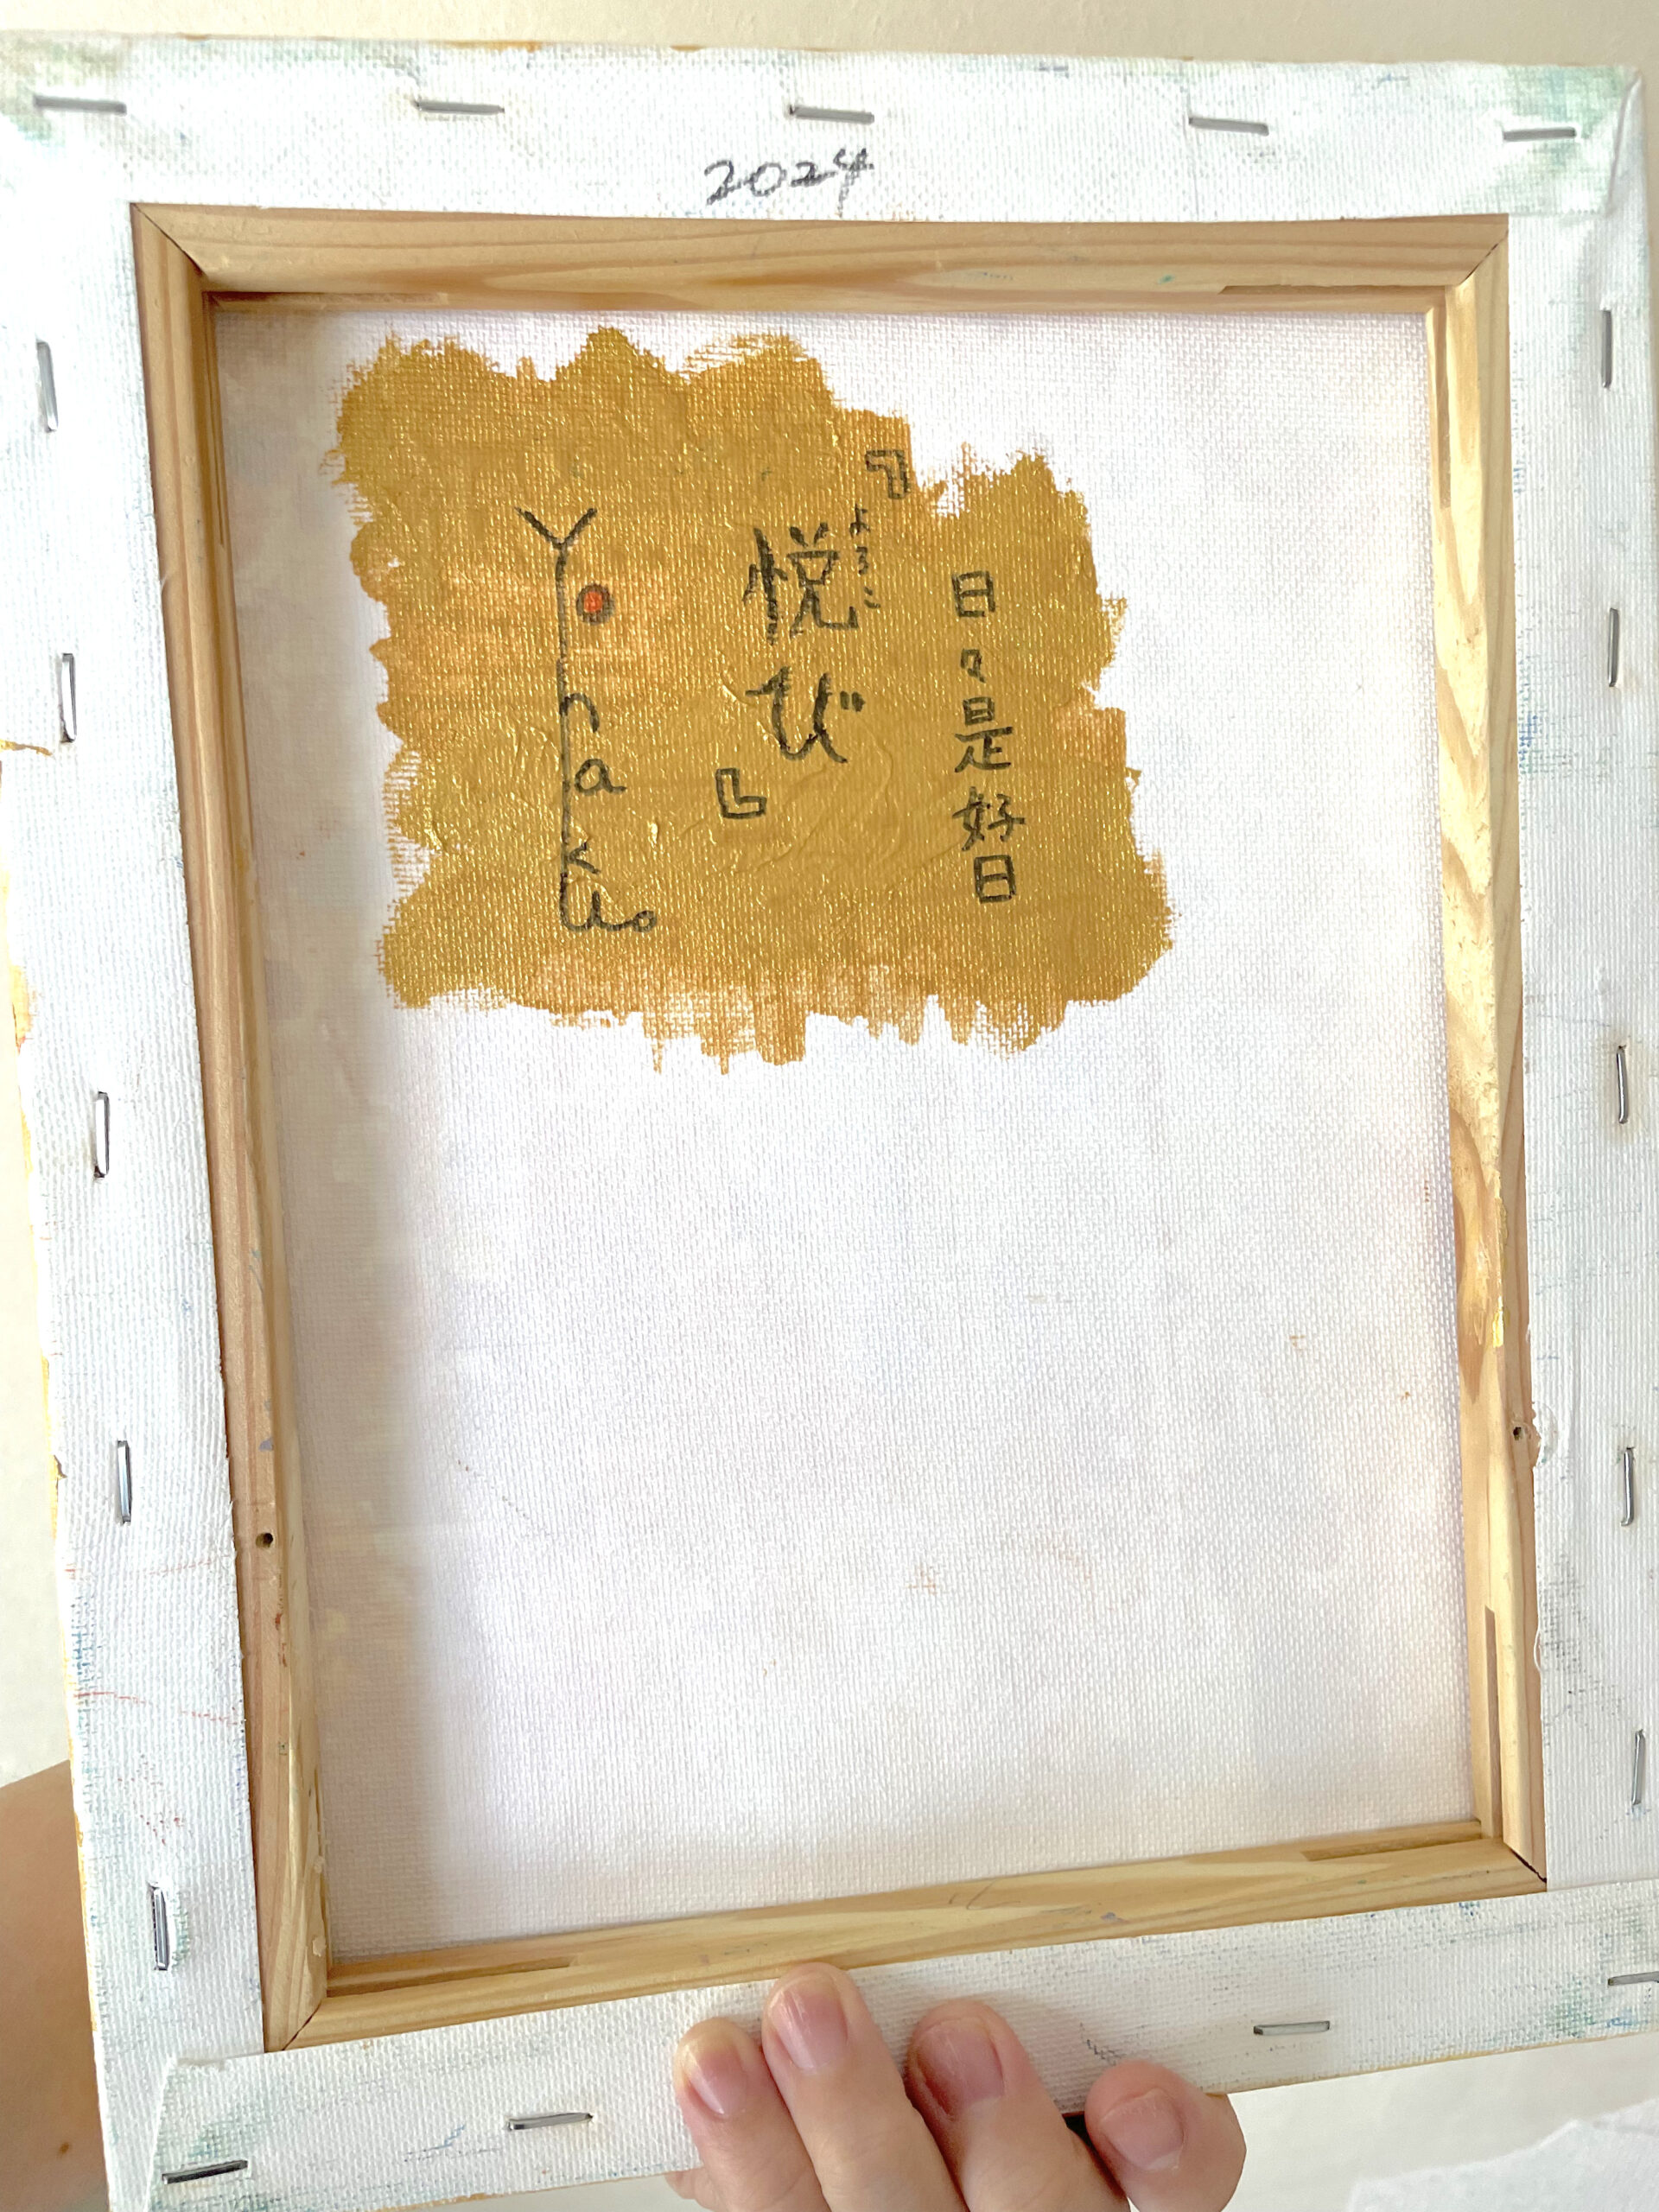 2024
日々是好日
『悦び』
よろこ
Yonaku。